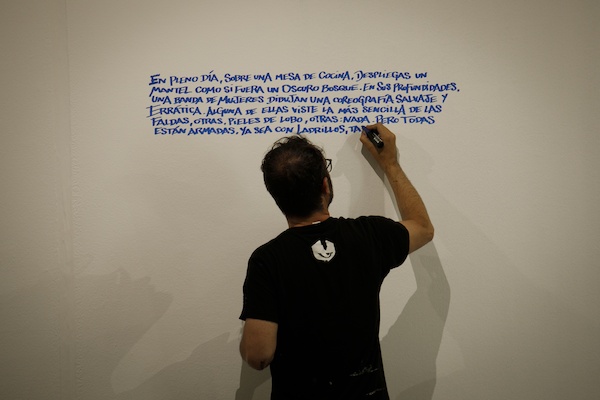 EN PLENO DÍA, SOBRE UNA MESA DE COCINA, DESPLIEGAS UN
MANTEL COMO SI FUERA UN OSCURO BOSQUE. EN SUS PROFUNDIDADES,
UNA BANDA DE MUJERES DIBUJAN UNA COREOGRAFÍA SALVAJE Y
ERRÁTICA. ALGUNA DE ELLAS VISTE LA MÁS SENCILLA DE LAS
FALDAS, OTRAS, PIELES DE LOBO, OTRAS NADA. PERO TODAS
ESTÁN ARMADAS. YA SEA CON LADRILLOS, TAN